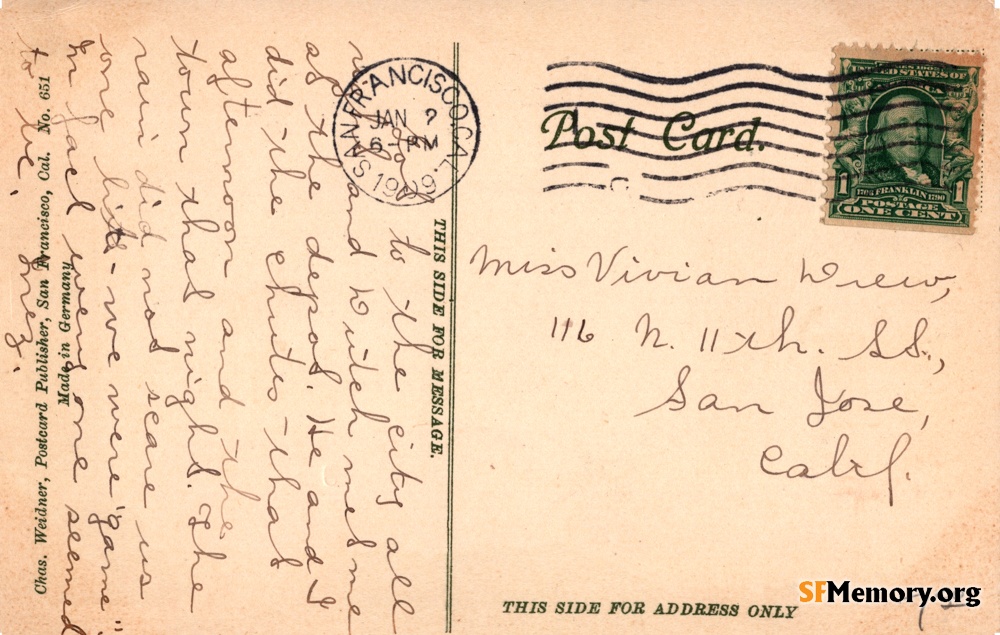 SAN FRANCISCO, CAL.
JAN ?
6 - PM
1909
Post Card.
UNITED STATES OF
1706 FRANKLIN 1790
1 POSTAGE 1
ONE CENT
to the city all
and Dutch met me
at the depot. He and I
did the Chutes - that
afternoon and the
town that night. The
rain did not scare us
one bit - we were "game"
In fact every one seemed
to be. Inez.
THIS SIDE FOR MESSAGE.
Chas. Weidner, Postcard Publisher, San Francisco, Cal. No. 651
Made in Germany
Miss Vivian Drew,
116 N. 11th. St.,
San Jose,
Calif.
THIS SIDE FOR ADDRESS ONLY
SFMemory.org